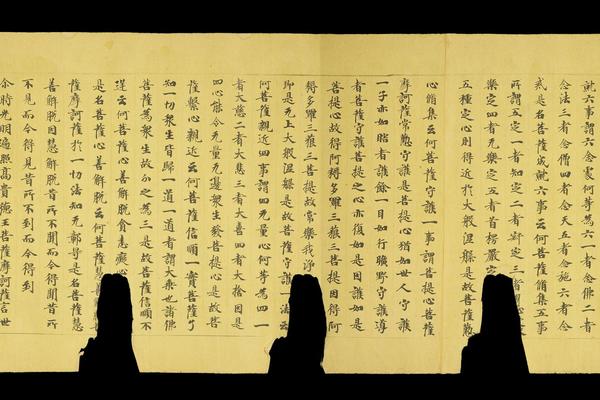 就六事謂六念處何等為六一者念佛二者
念法三者念僧四者念天五者念施六者念
戒是名菩薩成就六事云何菩薩脩集五事
所謂五定一者知定二者寂定三者
樂定四者无樂定五者首楞嚴定
五種定心則得近於大般涅槃是故菩薩懃
心脩集云何菩薩守護一事謂菩提心菩薩
摩訶薩常懃守護是菩提心猶如世人守護
一子亦如瞎者護餘一目如行曠野守護導
者菩薩守護菩提之心亦復如是因護如是
菩提心故得阿耨多羅三藐三菩提因得阿
耨多羅三藐三菩提故常樂我淨
即是无上大般涅槃是故菩薩守護一法云
何菩薩親近四事謂四无量心何等為四一
者大慈二者大悲三者大喜四者大捨因是
四心能令无量无邊眾生發菩提心是故菩
薩繫心親近云何菩薩信順一實菩薩了
知一切眾生皆歸一道一道者謂大乘也諸佛
菩薩為眾生故分之為三是故菩薩信順不
逆云何菩薩心善解脫貪恚癡心
是名菩薩心善解脫云何菩薩慧善
薩摩訶薩於一切法知无鄣导是名菩薩慧
善解脫因慧解脫昔所不聞而今得聞昔所
不見而今得見昔所不到而今得到
尒時光明遍照高貴德王菩薩摩訶薩言世